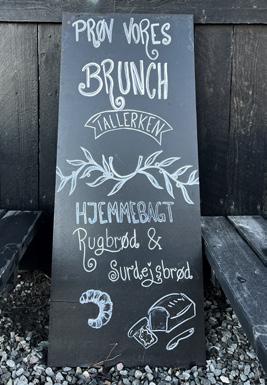 PRØV VORES
BRUNCH
TALLERKEN
HJEMMEBAGT
Rugbrød &
Surdejsbrød